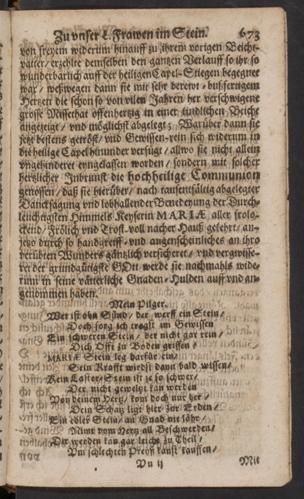 Zu unser L. Frawen im Stein. 673
von freyem widerum hinauff zu ihrem vorigen Beicht-
vatter / erzehlte demselben den gantzen Verlauff so ihr so
wunderbarlich auff der heiligen Capel-Stiegen begegnet
war / weßwegen dann sie mit sehr berewt / bußfertigem
Hertzen die schon so von vilen Jahren her verschwigene
grosse Missethat offenhertzig in einer kindlichen Beicht
angezeigt / und möglichst abgelegt; Warüber dann sie
jetzt bestens getröst / und Gewissen-rein sich widerum in
die heilige Capel hinunder verfügt / allwo sie nicht allein
ungehinderet eingelassen worden / sondern mit solcher
hertzlicher Inbrunst die hochheilige Communion
genossen / daß sie hierüber / nach tausentfältig abgelegter
Dancksagung und lobhallender Benedeyung der Durch-
leuchtigsten Himmels Keyserin MARIÆ aller frolo-
ckend / Frölich und Trost-voll nacher Hauß gekehrt / an-
jetzo durch so handgreiff- und augenscheinliches an ihro
verübten Wunders gäntzlich versicheret / und vergwisse-
ret der grundgütigste GOtt werde sie nachmahls wide-
rum in seine vätterliche Gnaden-Hulden auff und an-
genommen haben.
Mein Pilger.
Wer ist ohn Sünd / der werff ein Stein /
Doch sorg ich tragst im Gewissen
Ein schweren Stein / der nicht gar rein /
Dich Offt zu Boden gerissen /
MARIÆ Stein leg darfür ein /
Sein Krafft wirdst dann bald wissen /
Kein Laster-Stein ist je so schwer /
Der nicht geweltzt kan werden
Von deinem Hertz / kom doch nur her /
Dein Schatz ligt hier zur Erden /
Ein edler Stein / an Gnad nie lähr /
Nimt vom Hertz all Beschwerden /
Dir werden kan gar leicht zu Theil /
Um schlechten Preiß kanst kauffen /
Uu ij Mit